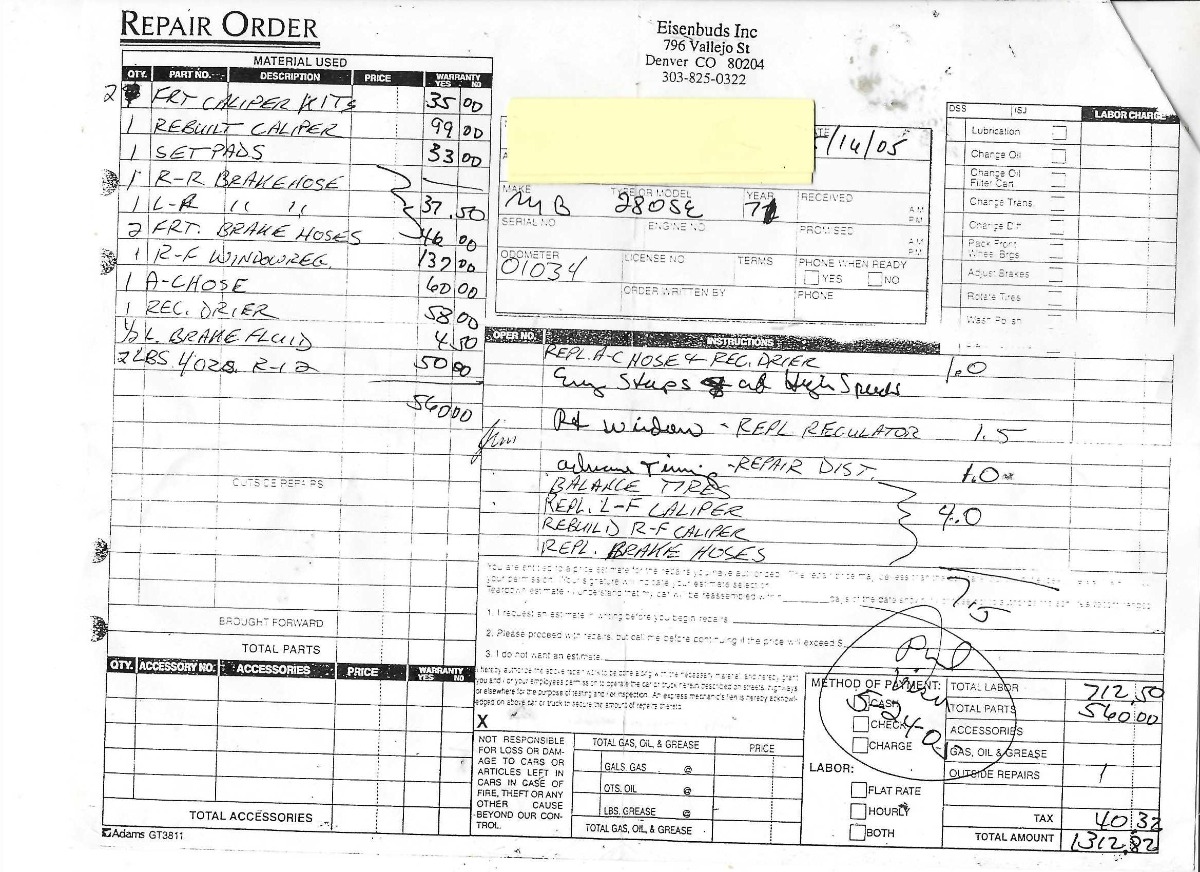 REPAIR ORDER
Eisenbuds Inc
796 Vallejo St
Denver CO 80204
303-825-0322
MATERIAL USED
QTY. PART NO. DESCRIPTION PRICE WARRANTY YES NO
2 FRT CALIPER KITS 35 00
1 REBUILT CALIPER 99 00
1 SET PADS 33 00
1 R-R BRAKE HOSE
1 L-R " " 37.50
2 FRT. BRAKE HOSES 46 00
1 R-F WINDOW REG. 137 00
1 A-C HOSE 60 00
1 REC. DRIER 58 00
1/2 L. BRAKE FLUID 4 50
2 LBS 4 OZS. R-12 50 00
560 00
OUTSIDE REPAIRS
BROUGHT FORWARD
TOTAL PARTS
QTY. ACCESSORY NO. ACCESSORIES PRICE WARRANTY YES NO
TOTAL ACCESSORIES
Adams GT3811
/16/05
MAKE TYPE OR MODEL YEAR RECEIVED
MB 280SE 71 A.M. P.M.
SERIAL NO. ENGINE NO. PROMISED
A.M. P.M.
ODOMETER LICENSE NO TERMS PHONE WHEN READY
01034 YES NO
ORDER WRITTEN BY PHONE
DSS ISJ LABOR CHARGE
Lubrication
Change Oil
Change Oil Filter Cart
Change Trans.
Change Diff
Pack Front Wheel Brgs
Adjust Brakes
Rotate Tires
Wash Polish
OPER NO. INSTRUCTIONS
REPL. A-C HOSE & REC. DRIER 1.0
at High Speeds
Rt Window - REPL REGULATOR 1.5
Jim
advance Timing - REPAIR DIST. 1.0
BALANCE TIRES
REPL. L-F CALIPER 4.0
REBUILD R-F CALIPER
REPL. BRAKE HOSES
7.5
You are entitled to a price estimate for the repairs you have authorized.
your permission. Your signature will indicate your estimate selection.
1. I request an estimate in writing before you begin repairs.
2. Please proceed with repairs, but call me before continuing if the price will exceed $
3. I do not want an estimate.
I hereby authorize the above repair work to be done along with the necessary material and hereby grant
you and / or your employees permission to operate the car or truck herein described on streets, highways
or elsewhere for the purpose of testing and / or inspection. An express mechanic's lien is hereby acknowl-
edged on above car or truck to secure the amount of repairs thereto.
X
NOT RESPONSIBLE
FOR LOSS OR DAM-
AGE TO CARS OR
ARTICLES LEFT IN
CARS IN CASE OF
FIRE, THEFT OR ANY
OTHER CAUSE
BEYOND OUR CON-
TROL.
TOTAL GAS, OIL, & GREASE PRICE
GALS. GAS @
QTS. OIL @
LBS. GREASE @
TOTAL GAS, OIL, & GREASE
METHOD OF PAYMENT:
CASH
CHECK
CHARGE
LABOR:
FLAT RATE
HOURLY
BOTH
TOTAL LABOR 712.50
TOTAL PARTS 560 00
ACCESSORIES
GAS, OIL & GREASE
OUTSIDE REPAIRS
TAX 40 32
TOTAL AMOUNT 1312.82